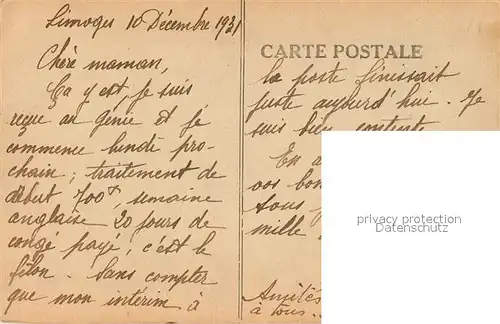 Limoges 10 Décembre 1931
Chère maman,
Ça y est, je suis
reçue au Génie et je
commence lundi pro-
chain ; traitement de
début 700f, semaine
anglaise 20 jours de
congé payé, c'est le
filon. Sans compter
que mon intérim à
CARTE POSTALE
la poste finissait
juste aujourd'hui. Je
suis bien contente
En a
vos bon
tous
mille
Amitiés
à tous.
privacy protection
Datenschutz